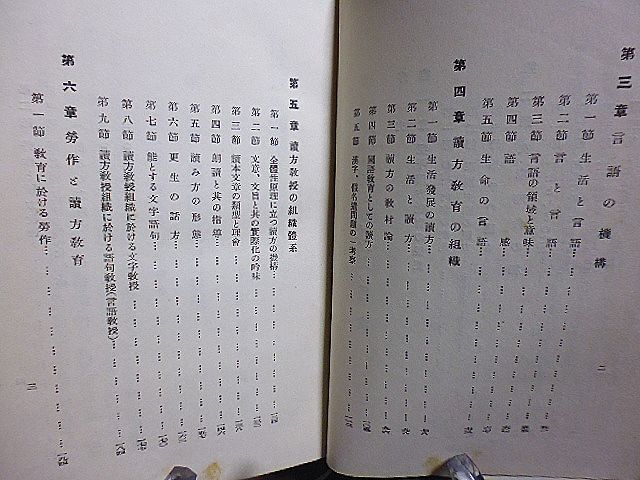 第三章 言語の機構
第一節 生活と言語
第二節 言と言語
第三節 言語の領域と意味
第四節 語感
第五節 生命の言語
第四章 讀方敎育の組織
第一節 生活發展の讀方
第二節 生活と讀方
第三節 讀方の敎材論
第四節 國語敎育としての讀方
第五節 漢字、假名遣問題の一考察
二
第五章 讀方敎授の組織體系
第一節 全體性原理に立つ讀方の機構
第二節 文章、文旨と其の實際化の吟味
第三節 讀本文章の類型と理會
第四節 朗讀と其の指導
第五節 讀み方の形態
第六節 更生の話方
第七節 能とする文字語句
第八節 讀方敎授組織に於ける文字敎授
第九節 讀方敎授組織に於ける語句敎授(言語敎授)
第六章 勞作と讀方敎育
第一節 敎育に於ける勞作
三